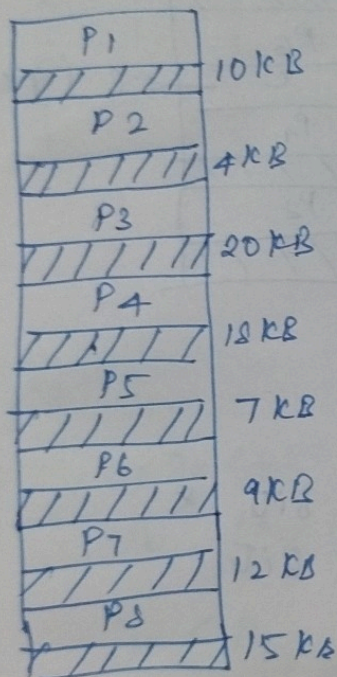 P1
10 KB
P2
4 KB
P3
20 KB
P4
18 KB
P5
7 KB
P6
9 KB
P7
12 KB
P8
15 KB